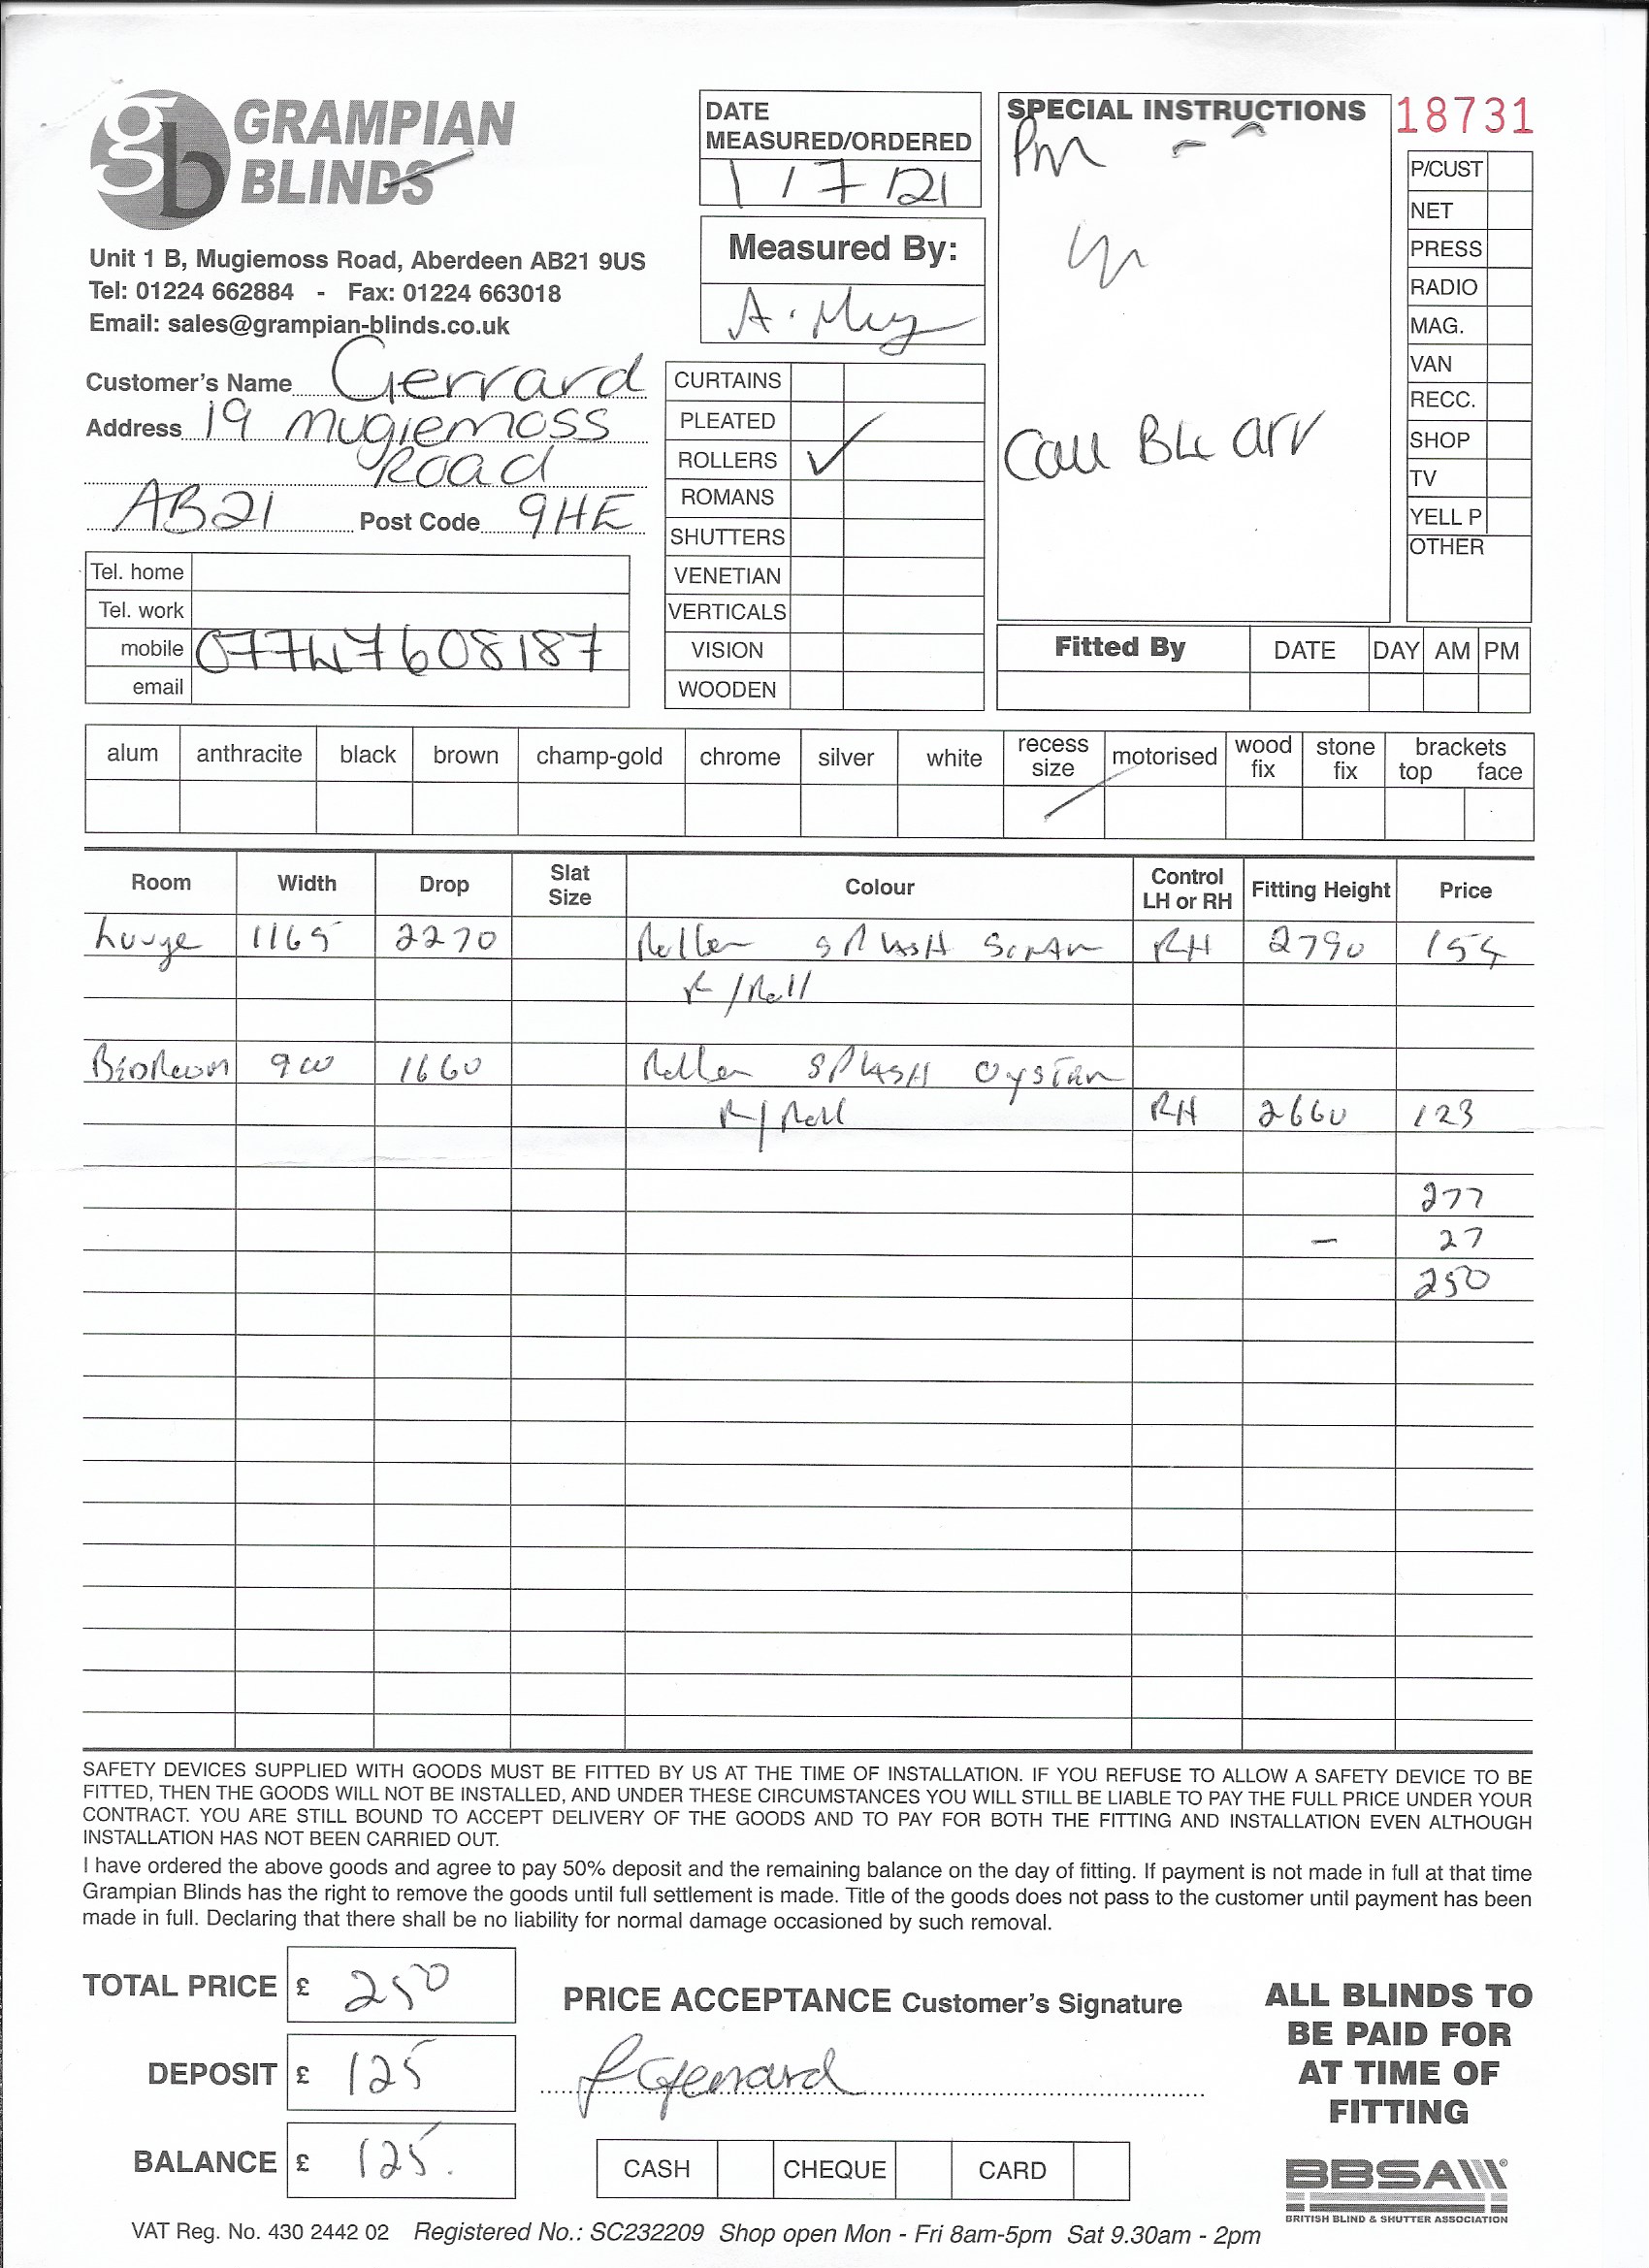 GRAMPIAN
BLINDS
Unit 1 B, Mugiemoss Road, Aberdeen AB21 9US
Tel: 01224 662884 - Fax: 01224 663018
Email: sales@grampian-blinds.co.uk
Customer's Name Gerrard
Address 19 Mugiemoss
Road
AB21 Post Code 9HE
Tel. home
Tel. work
mobile
email
DATE
MEASURED/ORDERED
1/7/21
Measured By:
A.
CURTAINS
PLEATED
ROLLERS ✓
ROMANS
SHUTTERS
VENETIAN
VERTICALS
VISION
WOODEN
SPECIAL INSTRUCTIONS
Pm
Call B4 arr
18731
P/CUST
NET
PRESS
RADIO
MAG.
VAN
RECC.
SHOP
TV
YELL P
OTHER
Fitted By DATE DAY AM PM
alum anthracite black brown champ-gold chrome silver white recess size motorised wood fix stone fix brackets top face
Room Width Drop Slat Size Colour Control LH or RH Fitting Height Price
Lounge 1165 2270 Roller SPLASH RH 2790 154
R/Roll
BEDROOM 900 1660 Roller SPLASH OYSTER
R/Roll RH 2660 123
277
- 27
250
SAFETY DEVICES SUPPLIED WITH GOODS MUST BE FITTED BY US AT THE TIME OF INSTALLATION. IF YOU REFUSE TO ALLOW A SAFETY DEVICE TO BE
FITTED, THEN THE GOODS WILL NOT BE INSTALLED, AND UNDER THESE CIRCUMSTANCES YOU WILL STILL BE LIABLE TO PAY THE FULL PRICE UNDER YOUR
CONTRACT. YOU ARE STILL BOUND TO ACCEPT DELIVERY OF THE GOODS AND TO PAY FOR BOTH THE FITTING AND INSTALLATION EVEN ALTHOUGH
INSTALLATION HAS NOT BEEN CARRIED OUT.
I have ordered the above goods and agree to pay 50% deposit and the remaining balance on the day of fitting. If payment is not made in full at that time
Grampian Blinds has the right to remove the goods until full settlement is made. Title of the goods does not pass to the customer until payment has been
made in full. Declaring that there shall be no liability for normal damage occasioned by such removal.
TOTAL PRICE £ 250
DEPOSIT £ 125
BALANCE £ 125.
PRICE ACCEPTANCE Customer's Signature
Gerrard
CASH CHEQUE CARD
ALL BLINDS TO
BE PAID FOR
AT TIME OF
FITTING
BBSA
BRITISH BLIND & SHUTTER ASSOCIATION
VAT Reg. No. 430 2442 02 Registered No.: SC232209 Shop open Mon - Fri 8am-5pm Sat 9.30am - 2pm